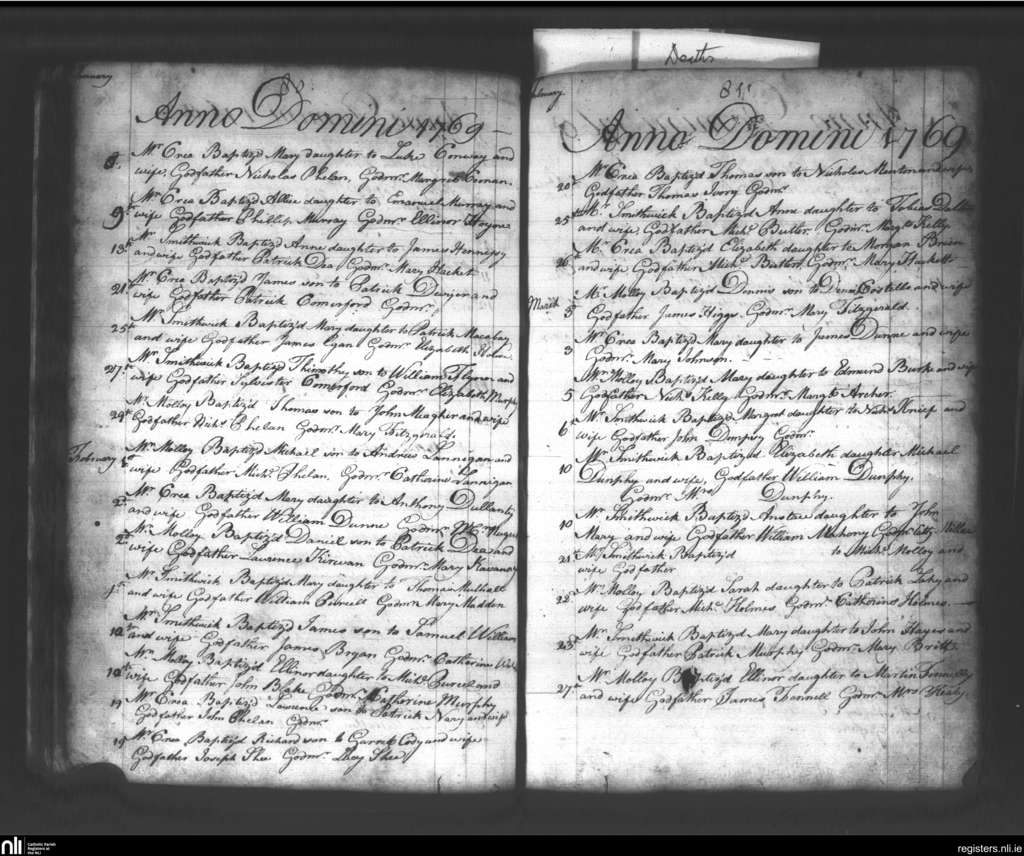 Deaths
January
Anno Domini 1769
8. Mr. Crea Baptiz'd Mary daughter to Luke Conway and
wife, Godfather Nicholas Phelan, Godmr. Margret
9th Mr. Crea Baptiz'd Allie daughter to Emanuel Murray and
wife Godfather Phillip Murray Godmr. Ellinor
13th Mr. Smithwick Baptiz'd Anne daughter to James Hennessy
and wife Godfather Patrick Dea, Godmr. Mary Hackett
21st Mr. Crea Baptiz'd James son to Patrick Dwyer and
wife Godfather Patrick Comerford Godmr.
25th Mr. Smithwick Baptiz'd Mary daughter to Patrick
and wife Godfather James Egan Godmr. Elizabeth
27th Mr. Smithwick Baptiz'd Thimothy son to William Flynn and
wife Godfather Sylvester Comerford Godmr. Elizabeth Murphy
29th Mr. Molloy Baptiz'd Thomas son to John Meagher and wife
Godfather Nichs. Phelan Godmr. Mary Fitzgerald.
February Mr. Molloy Baptiz'd Michael son to Andrew Lannigan and
wife Godfather Michl. Phelan, Godmr. Catherine Lannigan
2d Mr. Crea Baptiz'd Mary daughter to Anthony
and wife Godfather William Dunne Godmr.
2d Mr. Molloy Baptiz'd Daniel son to Patrick Dea and
wife Godfather Lawrence Kirwan Godmr. Mary Kavanagh
Mr. Smithwick Baptiz'd Mary daughter to Thomas Mulhall
and wife Godfather William Purcell Godmr. Mary Madden
Mr. Smithwick Baptiz'd James son to Samuel William
and wife Godfather James Bryan Godmr. Catherine
Mr. Molloy Baptiz'd Ellinor daughter to Michl. Purcel and
wife Godfather John Blake Godmr. Catherine Murphy
Mr. Crea Baptiz'd Lawrence son to Patrick Nary and wife
Godfather John Phelan Godmr.
19 Mr. Crea Baptiz'd Richard son to Garret Cody and wife
Godfather Joseph Shee Godmr. Shee
Anno Domini 1769
20th Mr. Crea Baptiz'd Thomas son to Nicholas and wife
Godfather Thomas Ivory Godmr.
25th Mr. Smithwick Baptiz'd Anne daughter to Tobias
and wife, Godfather Michl. Butler, Godmr. Kelly
26 Mr. Crea Baptiz'd Elizabeth daughter to Morgan Brien
and wife Godfather Michl. Butler, Godmr. Mary Hackett
March 3d Mr. Molloy Baptiz'd Dennis son to Denis Costello and wife
Godfather James Higgs Godmr. Mary Fitzgerald.
3 Mr. Crea Baptiz'd Mary daughter to James Dunne and wife
Godmr. Mary Johnson.
5 Mr. Molloy Baptiz'd Mary daughter to Edmond Burke and wife
Godfather Nichs. Kelly Godmr. Margt. Archer
6th Mr. Smithwick Baptiz'd Margret daughter to Nichs. and
wife Godfather John Godmr.
10 Mr. Smithwick Baptiz'd Elizabeth daughter Michael
Dunphy and wife, Godfather William Dunphy,
Godmr. Mrs. Dunphy.
10 Mr. Smithwick Baptiz'd Anstae daughter to John
Mary and wife Godfather William Mahony Godmr.
21st Mr. Smithwick Baptiz'd to Michl. Molloy and
wife Godfather
22 Mr. Molloy Baptiz'd Sarah daughter to Patrick Lahy and
wife Godfather Michl. Holmes Godmr. Catherine Holmes.
23 Mr. Smithwick Baptiz'd Mary daughter to John Hayes and
wife Godfather Patrick Murphy, Godmr. Mary
27th Mr. Molloy Baptiz'd Ellinor daughter to Martin
and wife Godfather James Godmr. Mrs. Healy.
nli
Catholic Parish
Registers at
the NLI
registers.nli.ie